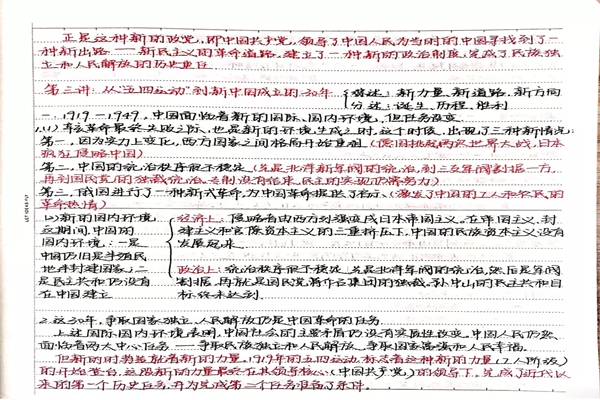 正是这种新的政党,即中国共产党,领导了中国人民为当时的中国寻找到了一
种新出路——新民主主义的革命道路,建立了一种新的政治制度,完成了民族独
立和人民解放的历史重任
第三讲:从"五四运动"到新中国成立的30年 综述:新力量、新道路、新方向
分述:诞生、历程、胜利
一、1919-1949,中国面临着新的国际、国内环境,但任务没变。
1.(1)辛亥革命最终失败之际,也是新的环境生成之时,这个时候,出现了三种新情况:
第一,因为实力上变化,西方国家之间格局开始重组(德国挑起两次世界大战,日本
疯狂侵略中国)
第二,中国的统治秩序很不稳定(先是北洋新军阀的统治,到三五年阀割据一方,
再到国民党的独裁统治,专制没有结束,民主的实现仍需努力)
第三,俄国进行了一种新式革命,为中国革命提供了启示。(激发了中国的工人和农民的
革命热情)
(2)新的国内环境,
这期间,中国的
国内环境:一是
中国仍旧是半殖民
地半封建国家,二
是民主共和仍没有
在中国建立
经济上:侵略者由西方列强变成日本帝国主义,在帝国主义、封
建主义和官僚资本主义的三重折压下,中国的民族资本主义没有
发展起来
政治上:统治秩序很不稳定,先是北洋军阀的统治,然后是军阀
割据,再就是国民党蒋介石集团的独裁,孙中山的民主共和目
标终未达到。
2.这30年,争取国家独立、人民解放仍是中国革命的任务
上述国际、国内环境表明,中国社会的主要矛盾仍没有实质性改变,中国人民仍然
面临着两大中心任务——争取民族独立和人民解放、争取国家富强和人民幸福。
但新的时势造就着新的力量,1919年的五四运动,标志着这种新的力量(工人阶级)
的开始登台,这股新的力量最终在其领导核心(中国共产党)的领导下,完成了近代以
来的第一个历史任务,并为完成第二个任务准备了条件。